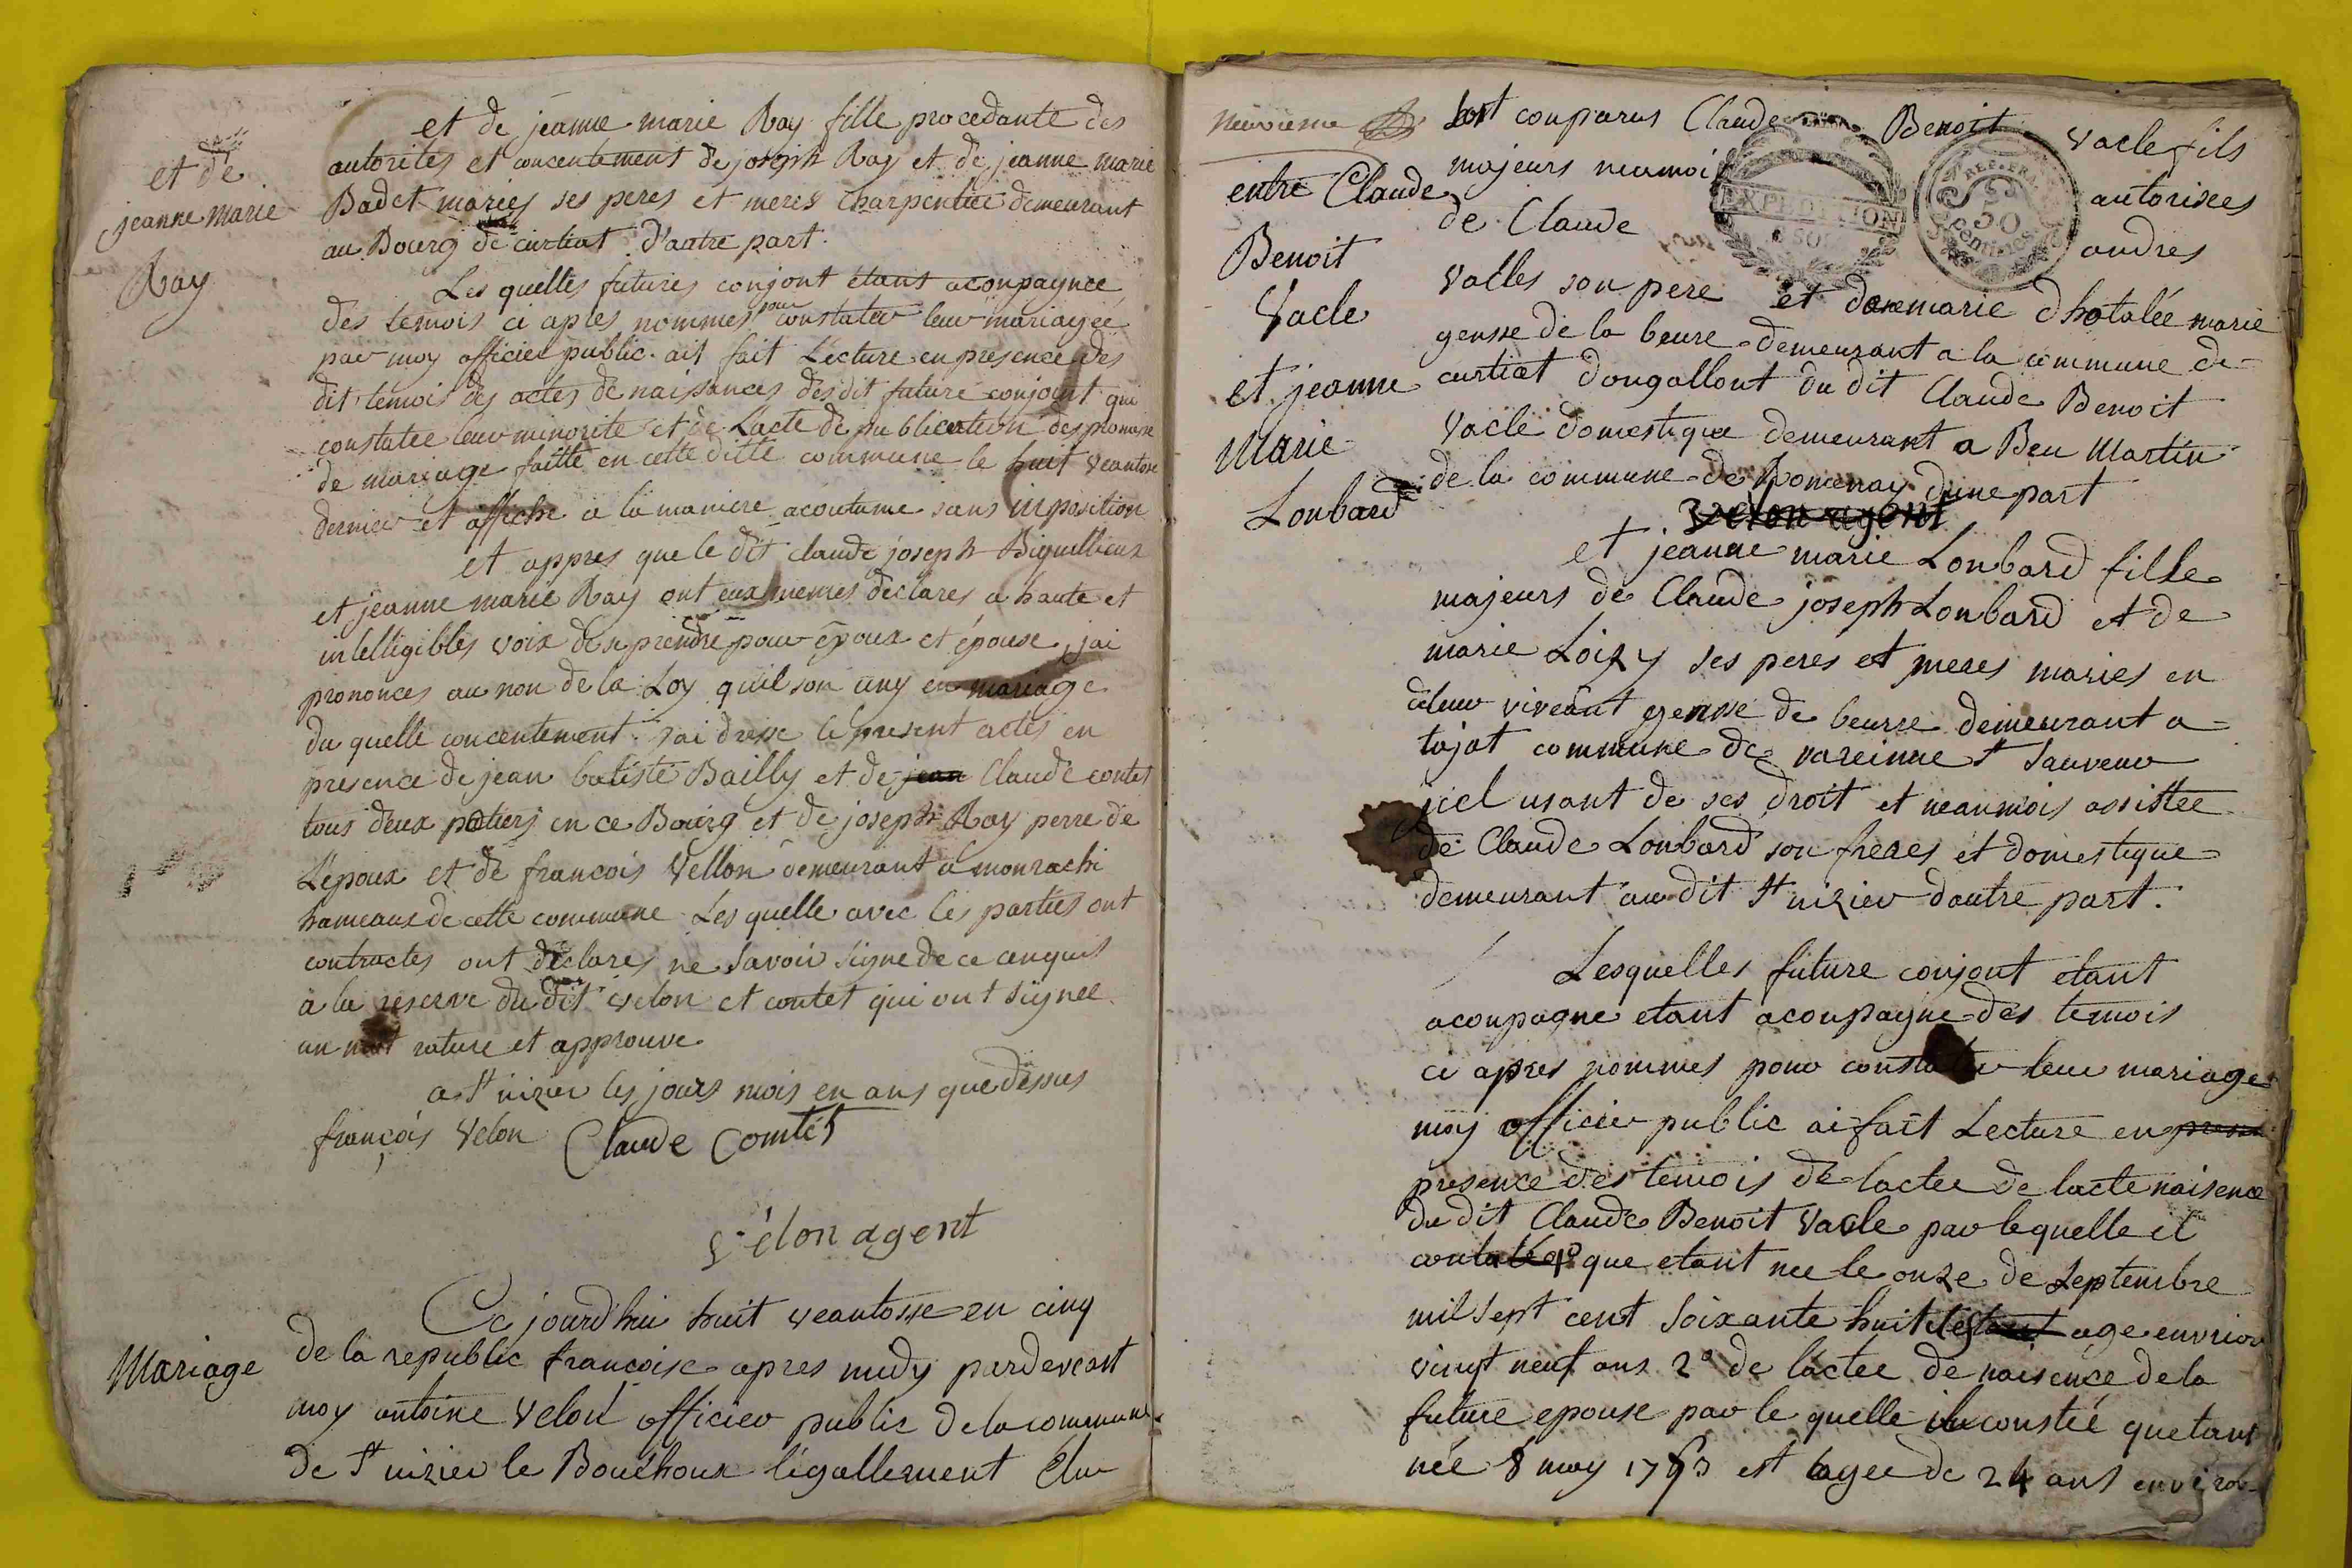 et de
jeanne marie
Ray
et de jeanne marie Ray fille procedante des
autorites et concentement de joseph Ray et de jeanne marie
Badet maries ses peres et meres charpentiee demeurant
au Bourg de curtiat d'autre part.
Les quelles futures conjont etant aconpagnee
des temois ci aples nommes pour constater leur mariagee
par moy officier public ait fait Lecture en presence des
dit temois des actes de naissances desdit future conjoint qui
constatee leur minorite et de Lacte de publication des promesse
de mariage faitte en cette ditte commune le huit veantose
dernier et affiche a la maniere acoutume sans inposition
et appres que le dit claude joseph Biguillieux
et jeanne marie Ray ont eux memes declares a haute et
intelligibles voix de se prendre pour epoux et épouse jai
prononces au non de la Loy quil son uny en mariage
du quelle concentement jai dresse le present actes en
presence de jean batiste Bailly et de jean Claude contet
tous deux potiers en ce Bourg et de joseph Ray perre de
Lépoux et de francois Vellon demeurant a monrachi
hameaux de cette commune Les quelle avec les parties ont
contractes ont declares ne savoir signe de ce enquis
a la reserve du dit velon et contet qui ont signee
un mot rature et approuve
a St nizier les jours mois en ans que dessus
françois velon Claude Comtet
vélon agent
Mariage
Ce jourd'hui huit veantosse en cinq
de la republic francoise apres midy pardeveant
moy antoine velon officier public de la commune
de St nizier le Bouchoux légallement élu
neuvieme
entre Claude
Benoit
Vacle
et jeanne
Marie
Lonbard
sont conparus Claude Benoit vacle fils
majeurs neamoi autorisees
de Claude andres
EXPEDITION
50
Centimes
Valles son pere et danemarie dhatalée marie
gensse de la beure demeurant a la commune de
curtiat dongallont du dit Claude Benoit
Vacle domestique demeurant a Beu Martin
de la commune de Romenay dune part
Velon agent
et jeanne marie Lonbard fille
majeurs de Claude joseph Lonbard et de
marie Loizy ses peres et meres maries en
deleur viveant gensse de beurre demeurant a
tajat commune de vareinne St Sauveur
icel usant de ses droit et neanmois assistee
de Claude Lonbard son freres et domestique
demeurant au dit St nizier dautre part.
Lesquelles future conjont etant
aconpagne etant aconpagne des temois
ci apres nommes pour constater leur mariage
moy officier public ai fait Lecture en prese
presence des temois de lactee de lacte naisence
du dit Claude Benoit vacle par lequelle il
que etant nee le onze de Septembre
mil sept cent soixante huit age environ
vingt neuf ans 2° de lactee de naisence de la
future epouse par le quelle il constéé quetant
née 8 may 1773 est agee de 24 ans environ